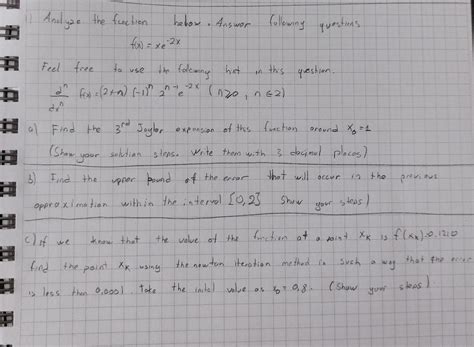 1) Analyze the function below. Answer following questions
f(x) = xe^-2x
Feel free to use the following hint in this question.
d^n/dx^n f(x) = (2x-n) (-1)^n 2^n-1 e^-2x (n≥0, n∈Z)
a) Find the 3rd Taylor expansion of this function around x0=1
(Show your solution steps. Write them with 3 decimal places)
b) Find the upper bound of the error that will occur in the previous
approximation within the interval [0,2] Show your steps)
c) If we know that the value of the function at a point xk is f(xk)=0,1210
find the point xk using the newton iteration method in such a way that the error
is less than 0,0001. Take the initial value as x0=0,8. (Show your steps)